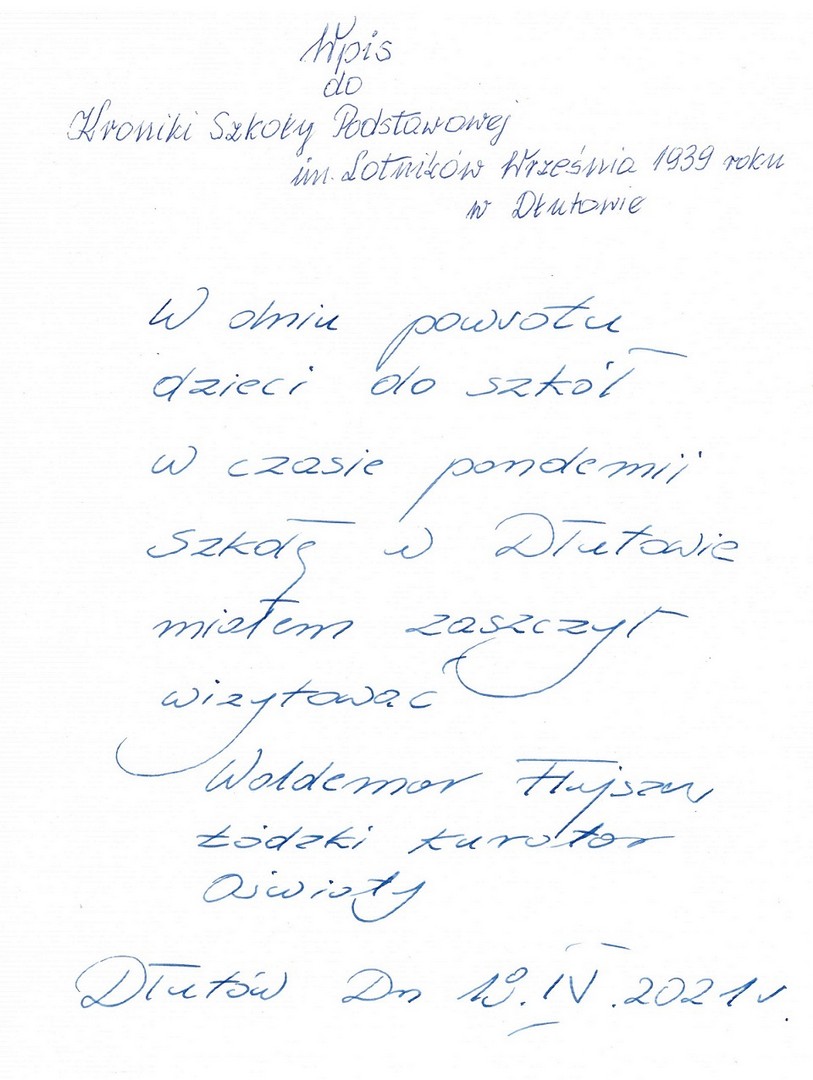 Wpis
do
Kroniki Szkoły Podstawowej
im. Lotników Września 1939 roku
w Dłutowie
W dniu powrotu
dzieci do szkół
w czasie pandemii
Szkołę w Dłutowie
miałem zaszczyt
wizytować
Waldemar Flajszer
Łódzki kurator
Oświaty
Dłutów Dn 19.IV.2021 r.